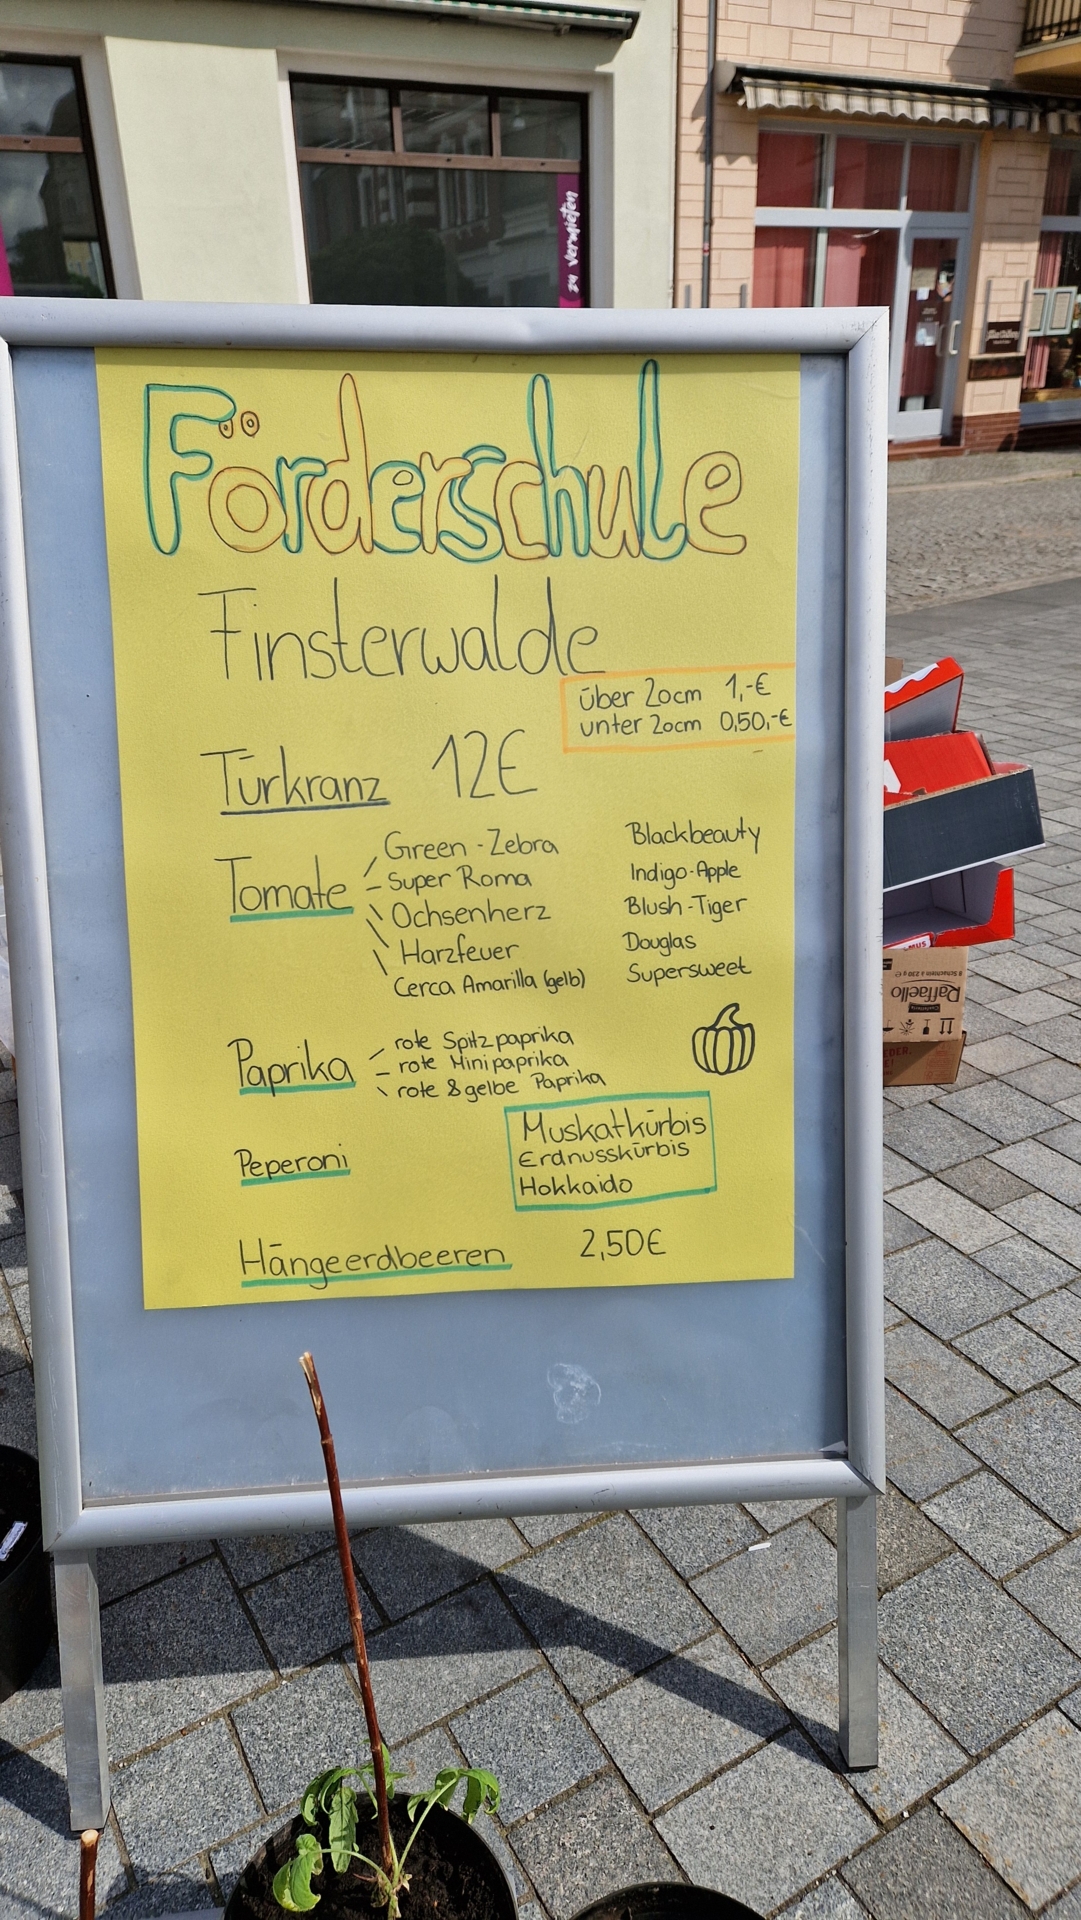 zu vermieten
Förderschule
Finsterwalde
über 20cm 1,-€
unter 20cm 0,50,-€
Türkranz 12€
Tomate
Green-Zebra
Super Roma
Ochsenherz
Harzfeuer
Cerca Amarilla (gelb)
Blackbeauty
Indigo-Apple
Blush-Tiger
Douglas
Supersweet
Paprika
rote Spitzpaprika
rote Minipaprika
rote & gelbe Paprika
Muskatkürbis
Erdnusskürbis
Hokkaido
Peperoni
Hängeerdbeeren 2,50€
Raffaello